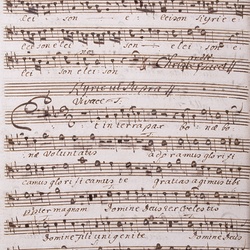 son e lei son Kyrie e
lei son e lei son e lei son e
lei son e lei son Christe tacet
Kyrie ut Supra
Vivace
Et in terra pax bonæ bo
næ voluntatis adoramus glorifi
camus glorificamus te gratias agimus tibi
propter magnam Domine Deus Rex cælestis
Domine Fili unigenite Domine